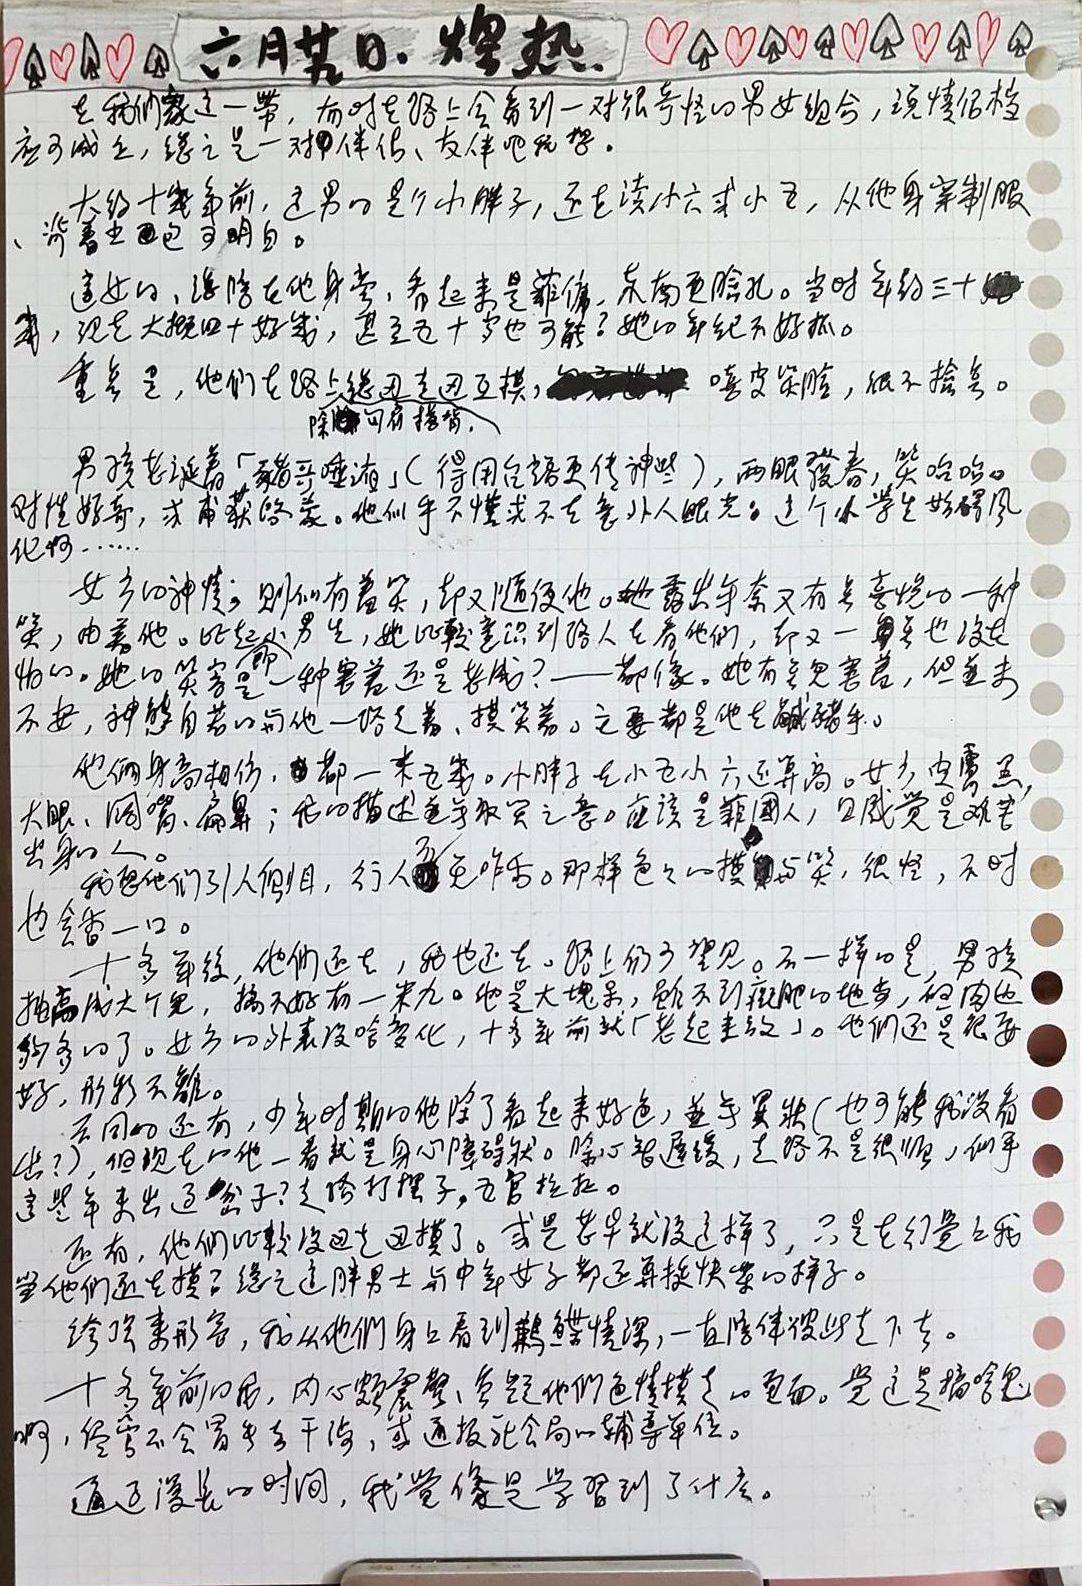 六月廿九日. 燠热.
在我们家这一带，有时在路上会看到一对很奇怪的男女组合，说情侣档
应可成立，总之是一对伴侣、友伴吧我想。
大约十几年前，这男的是个小胖子，还在读小六或小五，从他身穿制服
、背着书包可明白。
这女的，总陪在他身旁，看起来是菲傭，东南亚脸孔。当时年约三十
来岁，现在大概四十好几，甚至五十岁也可能？她的年纪不好抓。
重点是，他们在路上总边走边互摸， 嘻皮笑脸，很不搭嘎。
男孩老流着「豬哥唾涎」（得用台語更传神些），两眼發春，笑哈哈。
对性好奇，或甫获啓蒙。他似乎不懂或不在意外人眼光。这个小学生妨碍风
化啊……
女方的神情，则似有羞笑，却又随便他。她露出年奈又有点喜悦的一种
笑，由着他。比起小男生，她比較意识到路人在看他們，却又一点也没在
怕的。她的笑容是一种害羞还是老成？——都像。她有点兒害羞，但並未
不安，神態自若的与他一路走着、摸笑着。主要都是他在鹹豬手。
他們身高相仿，都一米五幾。小胖子在小五小六还算高。女方皮膚黑，
大眼、阔嘴、扁鼻；我的描述並无取笑之意。应该是菲國人，且感觉是难苦
出身的人。
我想他们引人側目，行人不免咋舌。那样色色的摸与笑，很怪，不时
也会香一口。
十多年後，他們还在，我也还在。路上仍可望見。不一样的是，男孩
抽高成大个兒，搞不好有一米九。他是大塊呆，虽不到癡肥的地步，但肉也
夠多的了。女方的外表没啥变化，十多年前就「老起来放」。他們还是很要
好，形影不離。
不同的还有，少年时期的他除了看起来好色，並无異狀（也可能我没看
出？），但现在的他一看就是身心障碍狀。除心智遲缓，走路不是很順，似乎
这些年来出过岔子？走路打摆子，五官拉扯。
还有，他們比較没边走边摸了。或是老早就没这样了，只是在幻觉上我
当他們还在摸？总之这胖男士与中年女子都还算挺快樂的样子。
给强来形容，我从他們身上看到鹣鲽情深，一直陪伴彼此走下去。
十多年前的我，内心頗震驚、负题他們色情摸走的画面。觉这是搞啥鬼
啊，儘管不会冒失去干涉，或通报社会局的輔導單位。
通过漫長的时间，我觉像是学習到了什么。